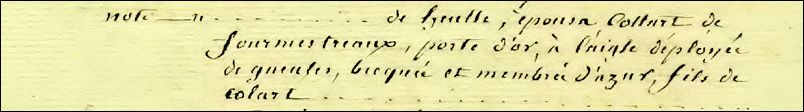 note — n . . . . . . . . . . de heulle, épousa Collart de
fourmestreaux, porte d'or, à l'aigle déployée
de gueules, becquée et membré d'azur, fils de
colart . . . . . . . . . .